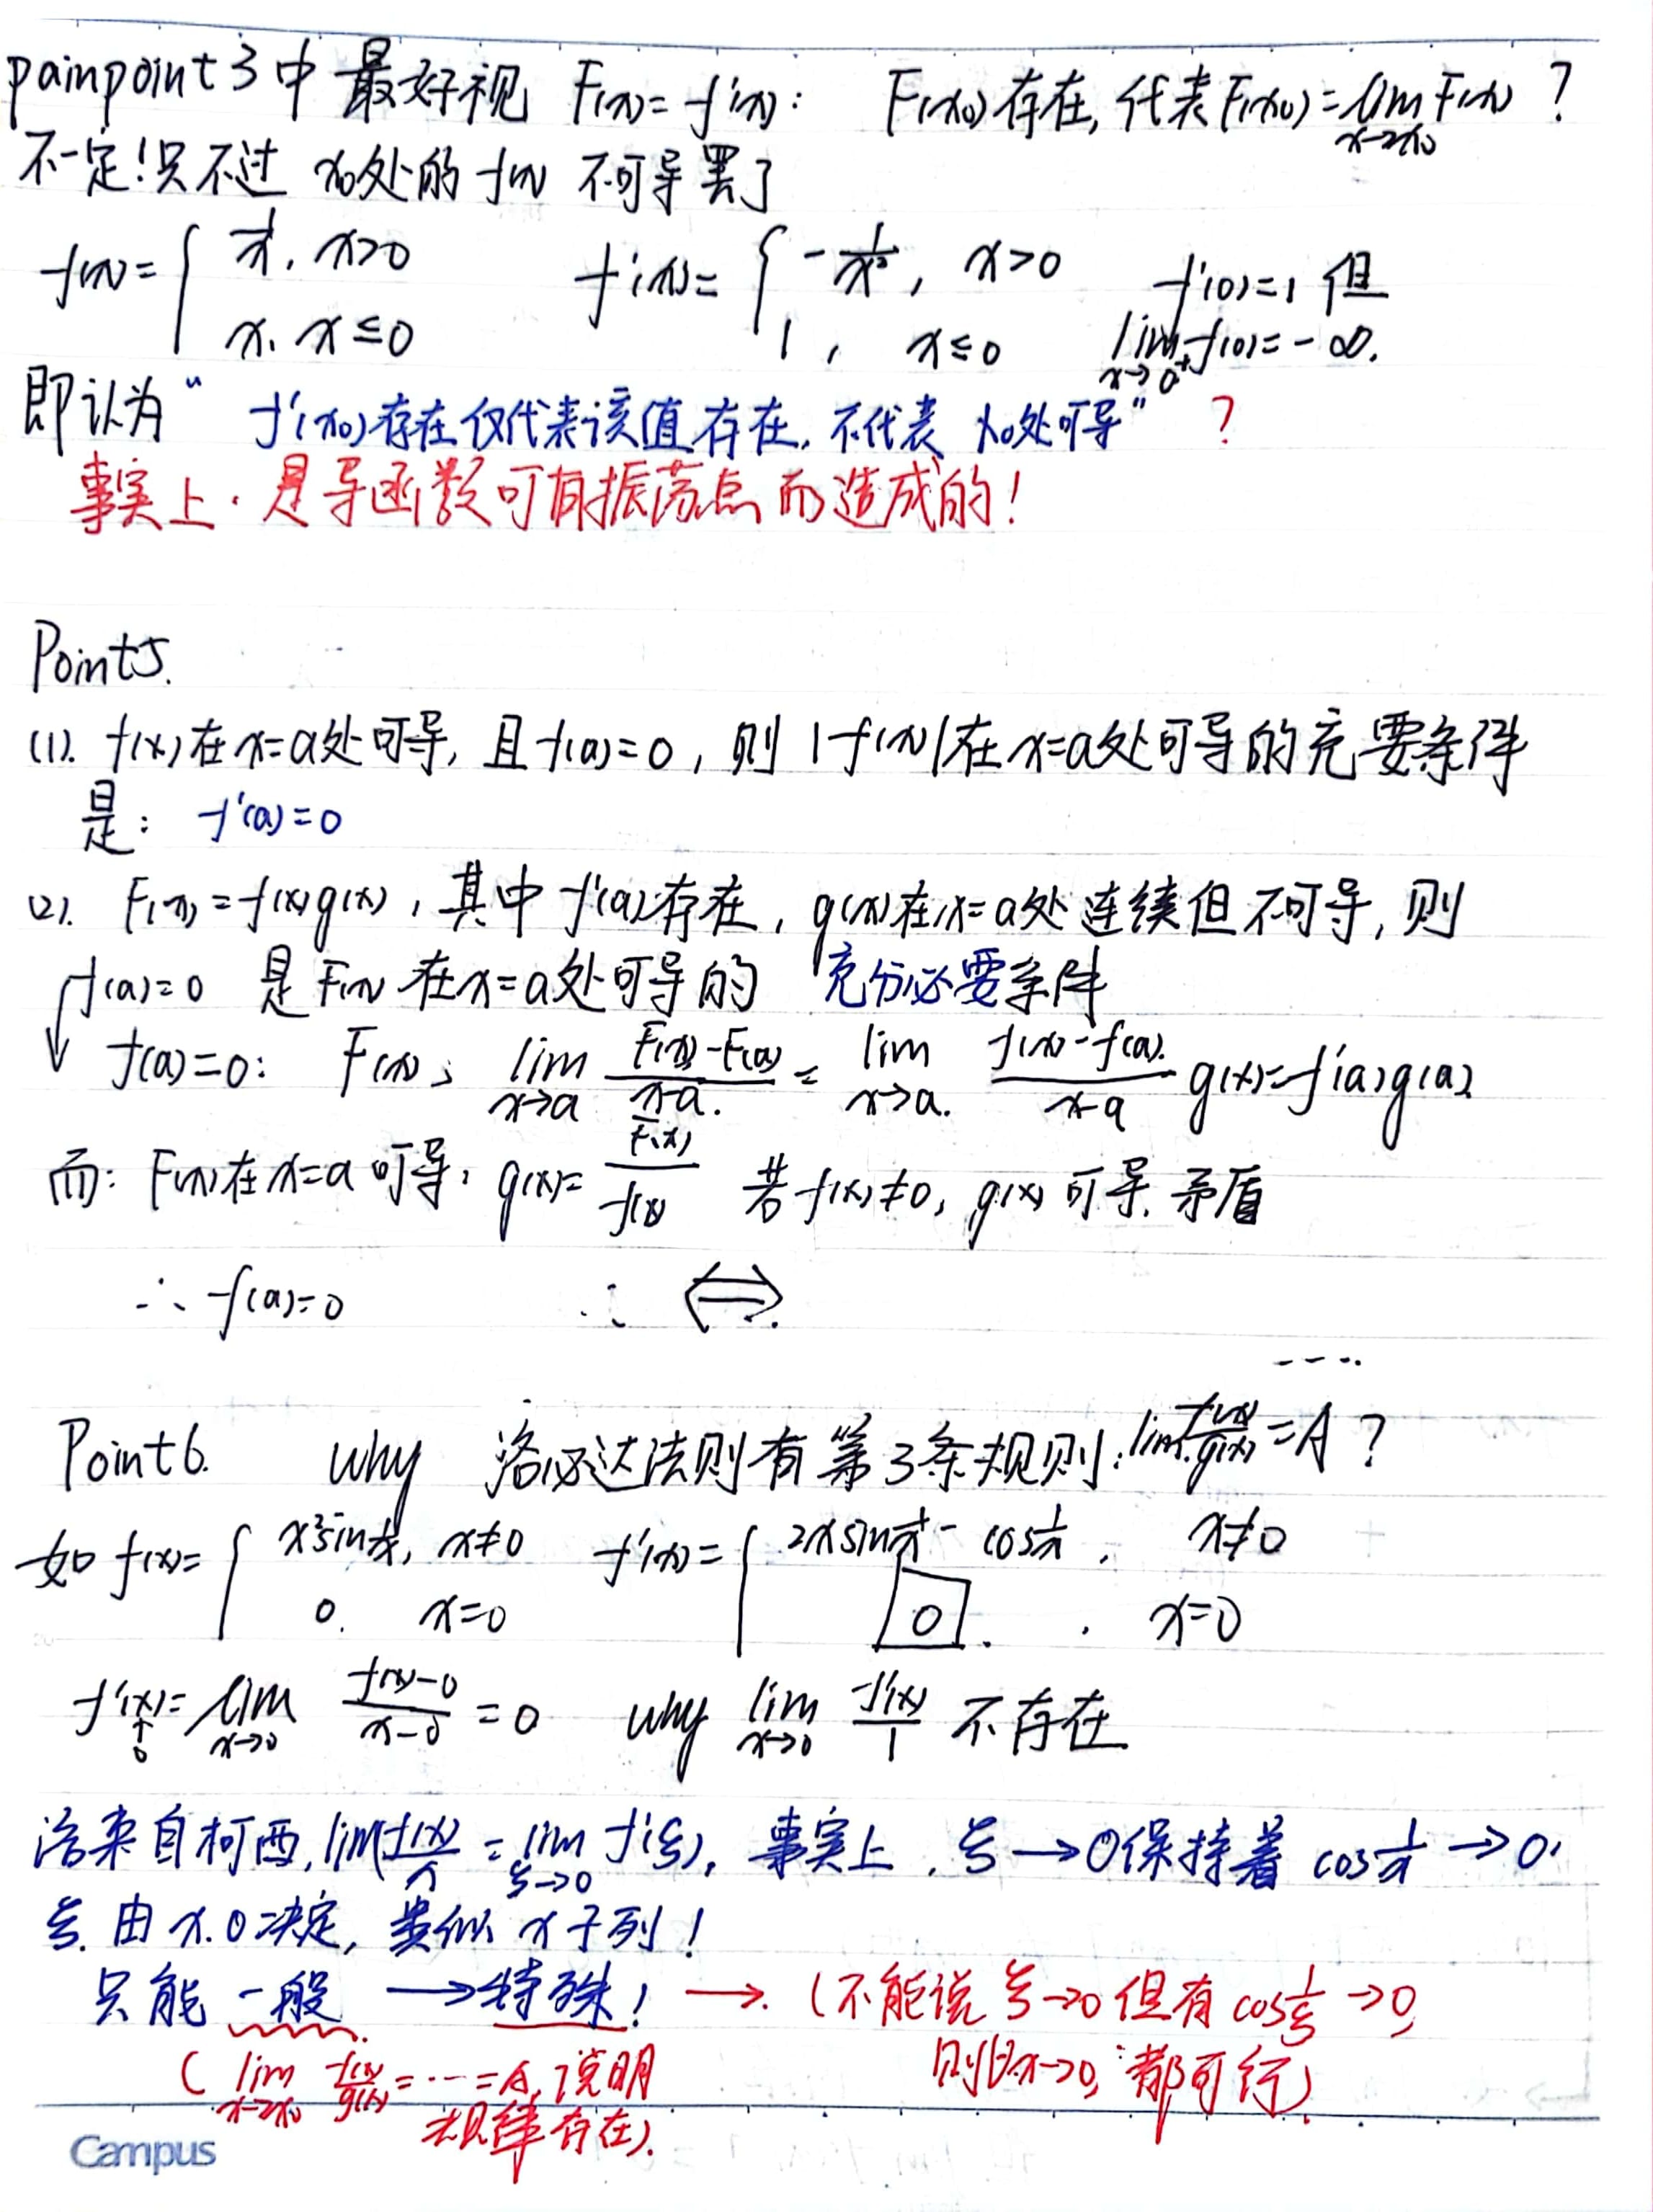 painpoint 3 中 最好视 F(x)=f'(x): F(x₀)存在, 代表F(x₀)=lim_{x→x₀}F(x) ?
不一定!只不过 x₀处的 f(x) 不可导罢了
f(x)={ 1/x, x>0 ; x, x≤0 f'(x)={ -1/x², x>0 ; 1, x≤0 f'(0)=1 但 lim_{x→0⁺} f(0)=-∞.
即认为 “ f'(x₀)存在仅代表该值存在, 不代表 x₀处可导” ?
事实上, 是导函数可有振荡点而造成的!
Point5.
(1). f(x)在x=a处可导, 且f(a)=0, 则 |f(x)|在x=a处可导的充要条件
是: f'(a)=0
(2). F(x)=f(x)g(x), 其中f'(a)存在, g(x)在x=a处连续但不可导, 则
f(a)=0 是F(x)在x=a处可导的 充分必要条件
↓ f(a)=0: F(x), lim_{x→a} (F(x)-F(a))/(x-a) = lim_{x→a} (f(x)-f(a))/(x-a) g(x)=f'(a)g(a)
而: F(x)在x=a可导, g(x)=F(x)/f(x) 若f(x)≠0, g(x)可导. 矛盾
∴ f(a)=0 ∴ ⟺
....
Point6. why 洛必达法则有第3条规则: lim f'(x)/g'(x)=A ?
如 f(x)={ x²sin1/x, x≠0 ; 0. x=0 f'(x)={ 2xsin1/x - cos1/x, x≠0 ; 0. , x=0
f'(x)=lim_{x→0} (f(x)-0)/(x-0) = 0 why lim_{x→0} f'(x)/1 不存在
↑
0
洛来自柯西, lim f(x)/x = lim_{ξ→0} f'(ξ), 事实上, ξ→0保持着 cos1/x →0.
ξ. 由 x.0决定, 类似 x子列!
只能 一般 → 特殊! → (不能说 ξ→0 但有 cos1/ξ →0,
( lim_{x→x₀} f(x)/g(x) = … = A, 说明 则以x→0, 都可行).
规律存在).
Campus